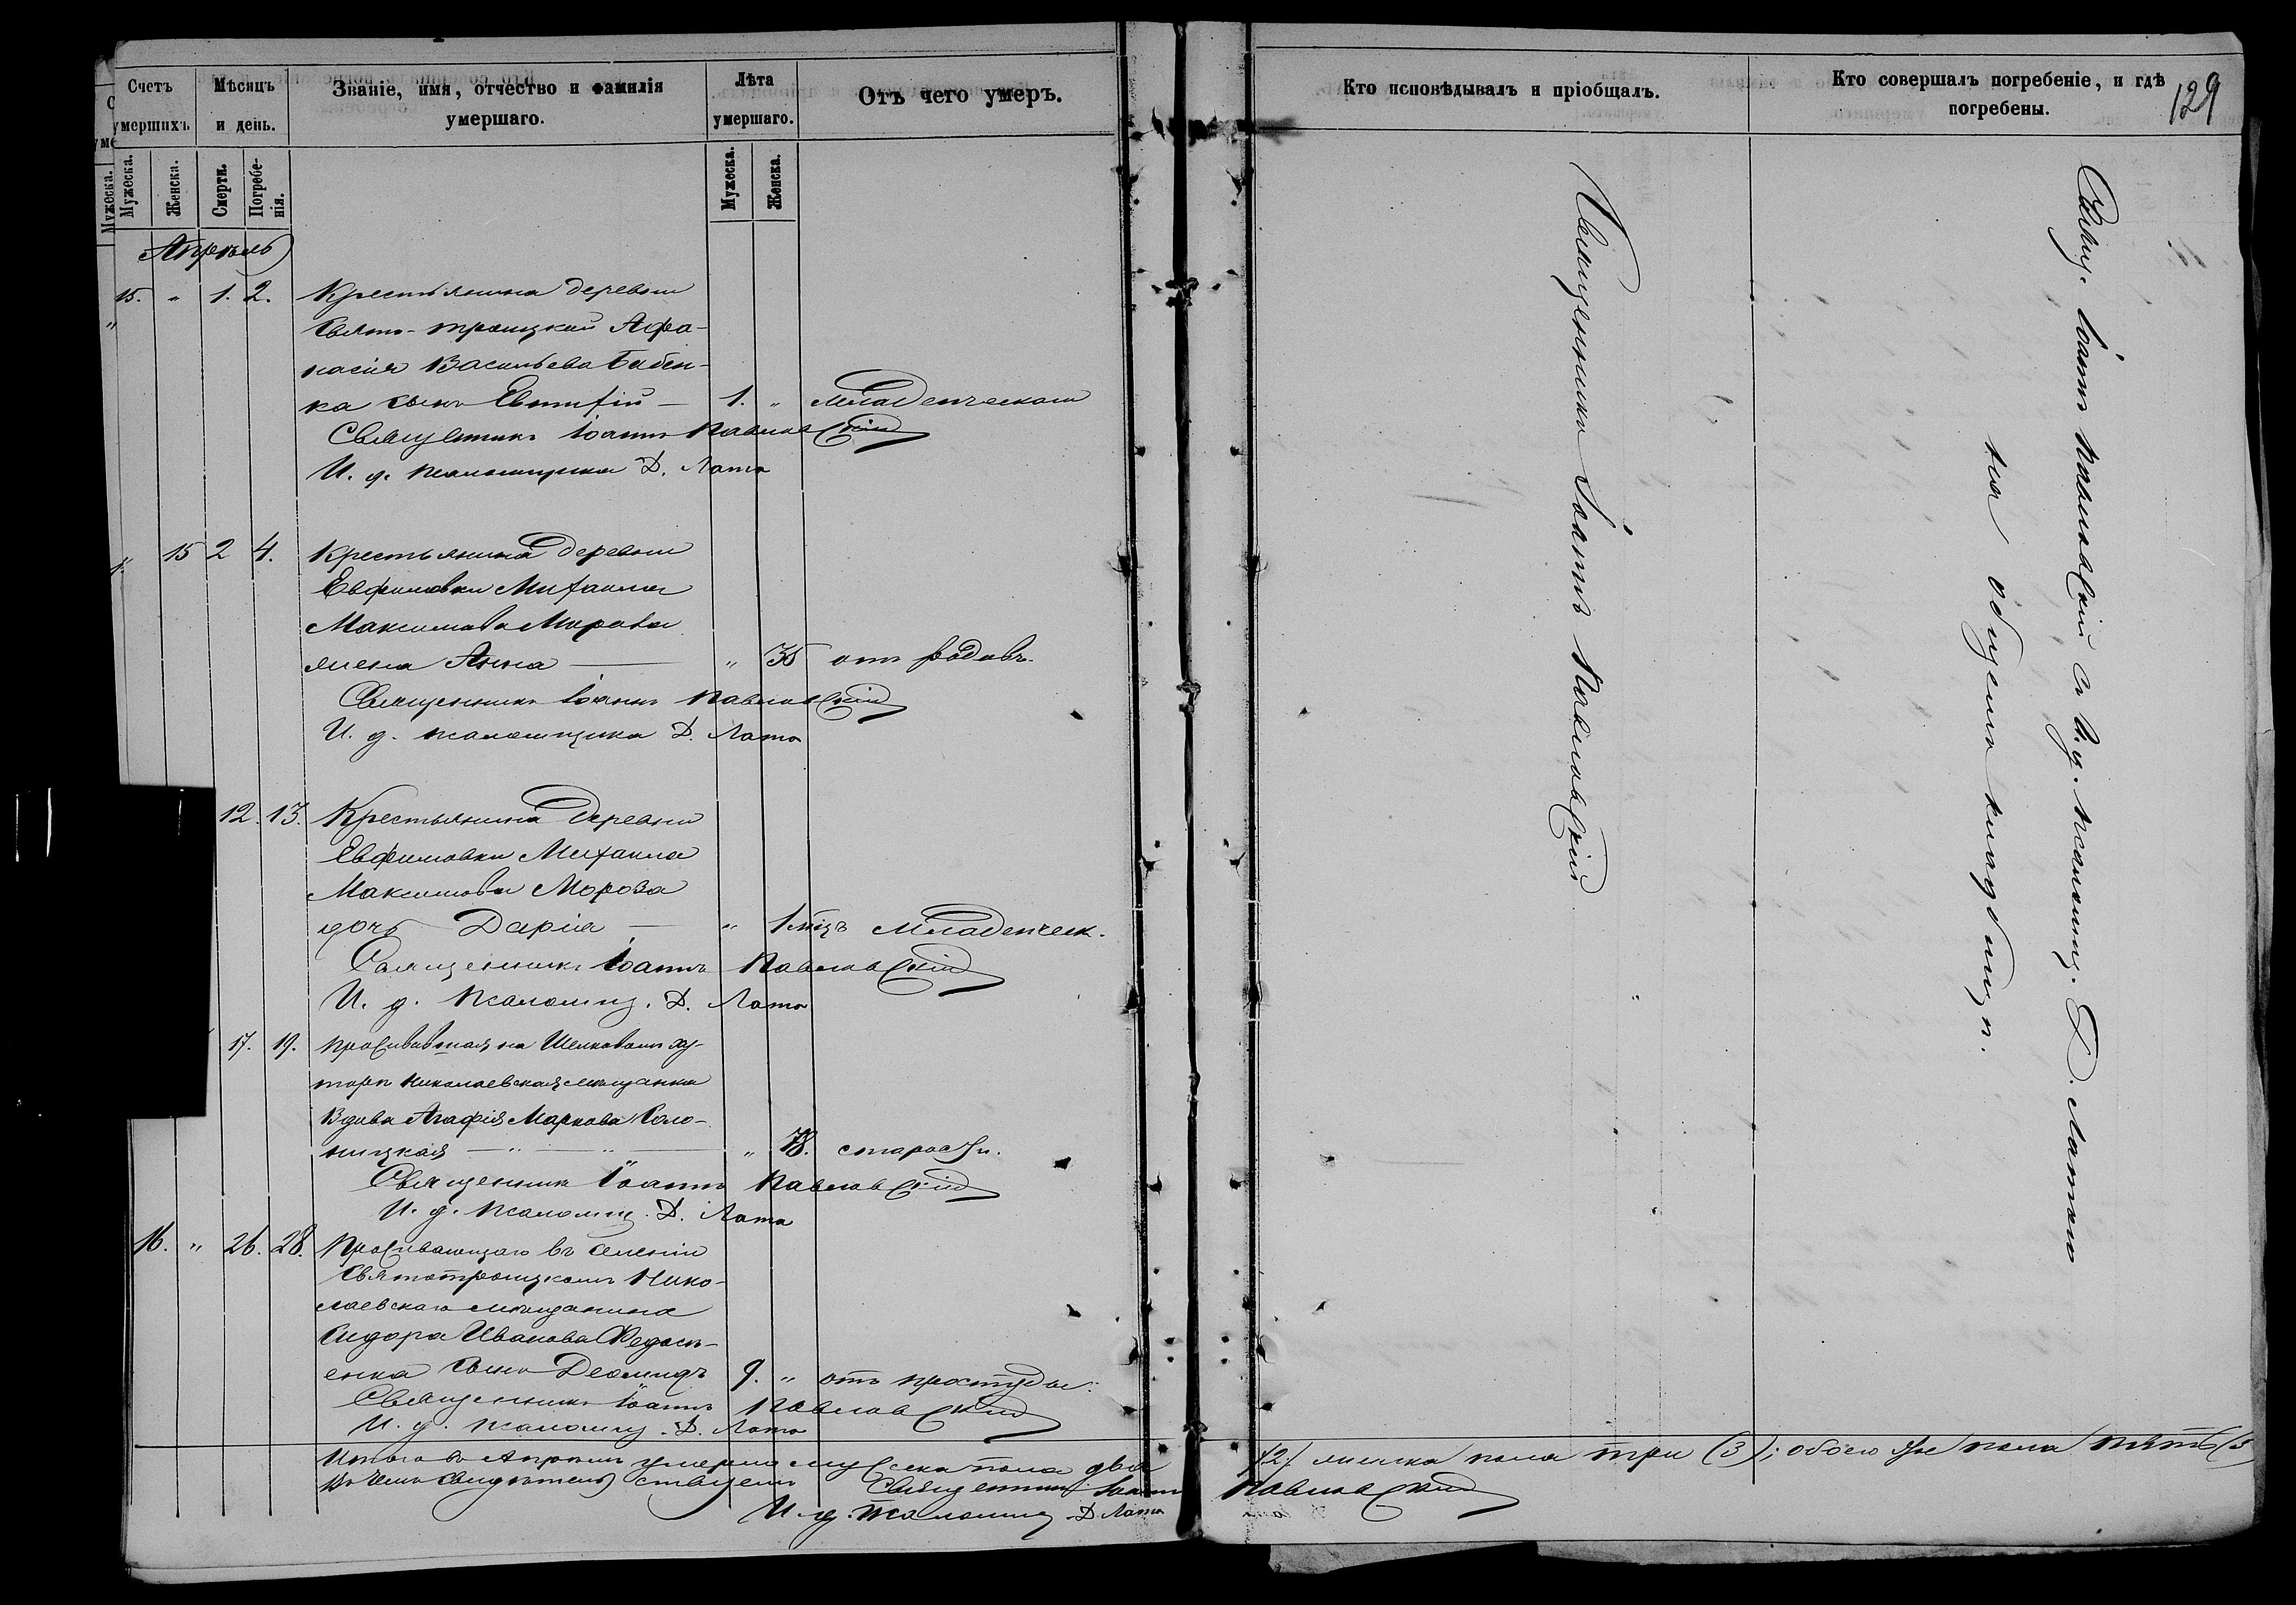 Счетъ умершихъ.
Мѣсяцъ и день.
Званіе, имя, отчество и фамилія умершаго.
Лѣта умершаго.
Отъ чего умеръ.
Кто исповѣдывалъ и пріобщалъ.
Кто совершалъ погребеніе, и гдѣ погребены.
129
Мужеска.
Женска.
Смерти.
Погребе-
нія.
Мужеска.
Женска.
Апрѣль
15. " 1. 2. Крестьянина деревни
Свято-троицкой Афа-
насія Васильева Бабен-
ка сынъ Евтихій — 1. " Младенческой
Священникъ Іоаннъ Павловскій
И. д. псаломщика Д. Лата
" 15 2 4. Крестьянина деревни
Евфимовки Михаила
Максимова Мороза
жена Анна — " 35 отъ родовъ.
Священникъ Іоаннъ Павловскій
И. д. псаломщика Д. Лата
12. 13. Крестьянина деревни
Евфимовки Михаила
Максимова Мороза
дочь Дарія — " 1 мѣцъ Младенческ.
Священникъ Іоаннъ Павловскій
И. д. псаломщ. Д. Лата
17. 19. Проживавшая на Шелковомъ ху-
торѣ Николаевская мѣщанка
Вдова Агафія Маркова
ницкая — " — " — " 78. старости.
Священникъ Іоаннъ Павловскій
И. д. псаломщ. Д. Лата
16. " 26. 28. Проживающаго въ селеніи
Святотроицкомъ Нико-
лаевскаго мѣщанина
Сидора Иванова Федосѣ-
енка сынъ Деомидъ 9. " отъ простуды.
Священникъ Іоаннъ Павловскій
И. д. псаломщ. Д. Лата
Итого въ Апрѣлѣ умерло мужеска пола два (2) женска пола три (3); обоего же пола пять (5
Въ чемъ свидѣтельствуемъ Священникъ Іоаннъ Павловскій
И. д. псаломщ. Д. Лата
Священникъ Іоаннъ Павловскій
Свящ. Іоаннъ Павловскій съ И. д. псаломщ. Д. Латою
на общемъ кладбищѣ.